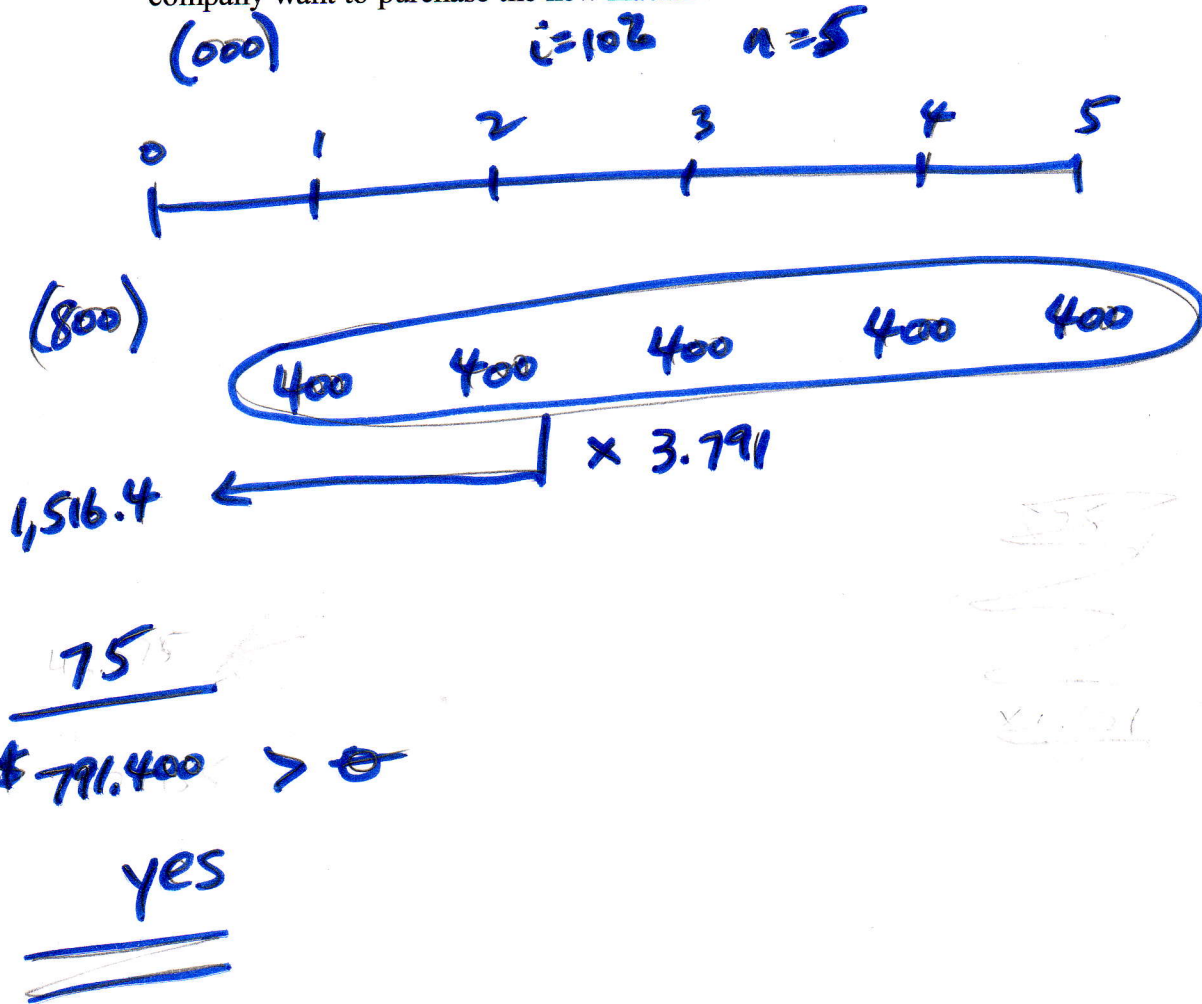 company want to purchase the new
(000) i=10% n=5
0 1 2 3 4 5
(800) 400 400 400 400 400
x 3.791
1,516.4
75
$791.400 > 0
yes